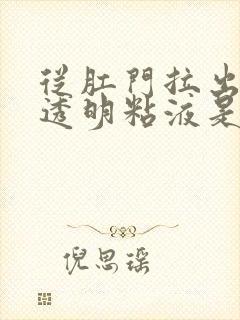 從肛門拉出
透明粘液是
倪思瑶